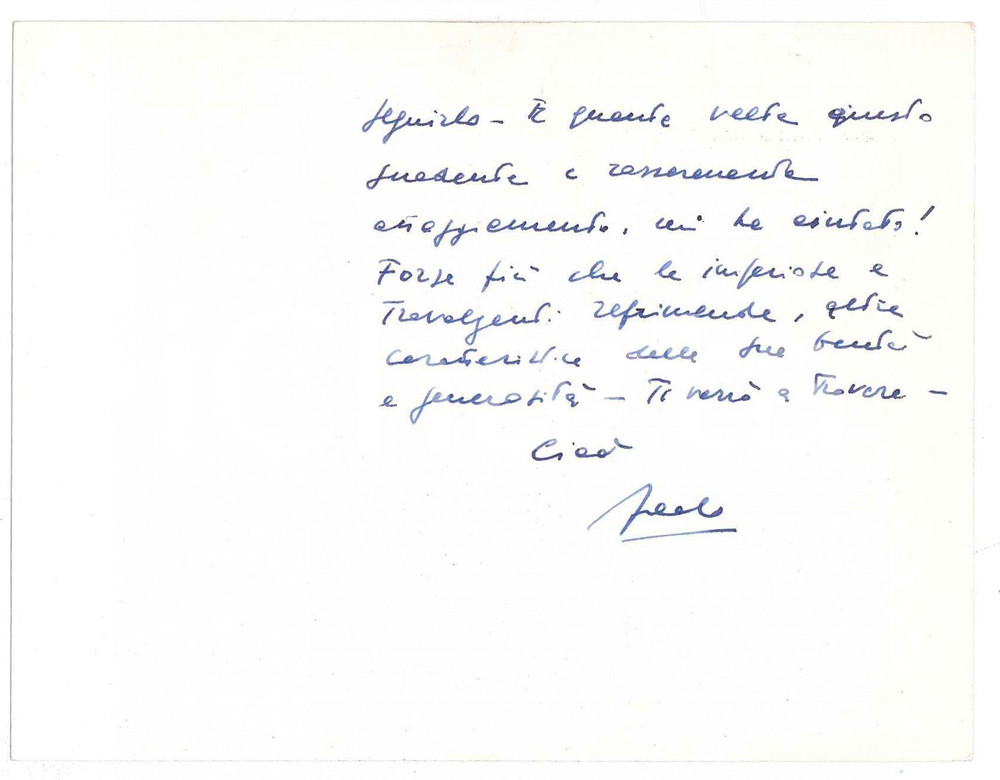 seguirlo - E quante volte questo
suadente e rasserenante
atteggiamento, mi ha aiutato!
Forse più che le imperiose e
travolgenti reprimende, altra
caratteristica della sua bontà
e generosità - Ti verrò a trovare -
Ciao
Paolo